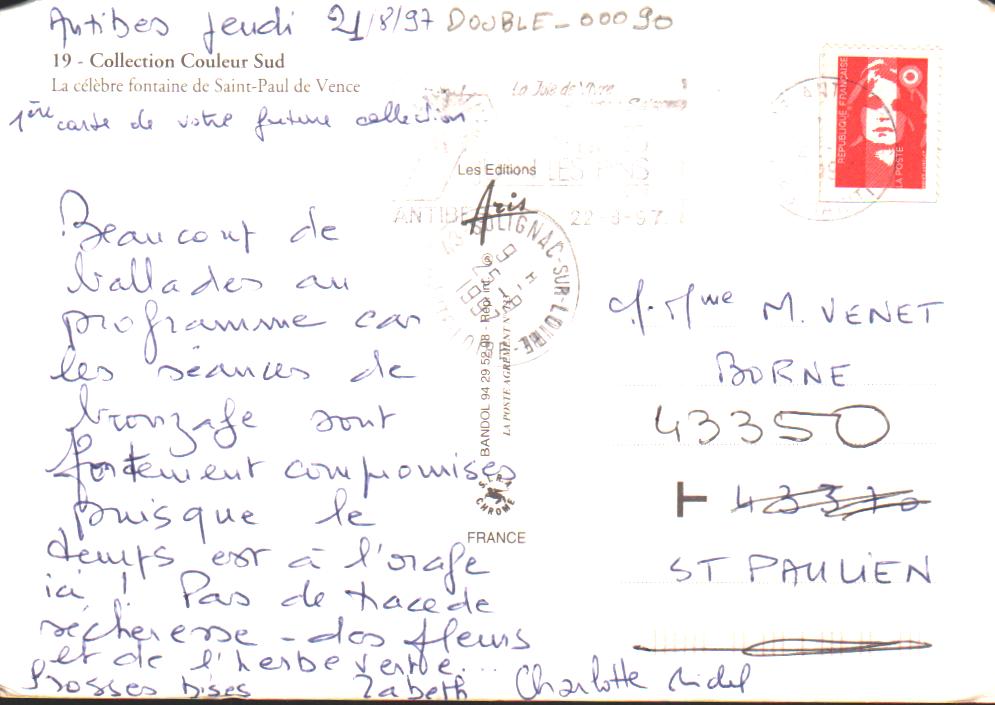 Antibes Jeudi 21/8/97 DOUBLE-00090
19 - Collection Couleur Sud
La célèbre fontaine de Saint-Paul de Vence
1ère carte de votre future collection
Beaucoup de
ballades au
programme car
les séances de
bronzage sont
fortement compromises
puisque le
temps est à l'orage
ici ! Pas de trace de
sécheresse - des fleurs
et de l'herbe verte...
Grosses bises Zabeth Charlotte Michel
La Joie de Vivre
LES PINS
ANTIBE 22-8-97
Les Editions
Aris
43 SOLIGNAC-SUR-LOIRE
9 H
25 -8
1997
BANDOL 94 29 52 98 - Repr. int.
LA POSTE AGRÉMENT N°
S.I.R.A.
CHROME
FRANCE
RÉPUBLIQUE FRANÇAISE
LA POSTE
ANTI
M. Mme M. VENET
BORNE
43350
43370
ST PAULIEN